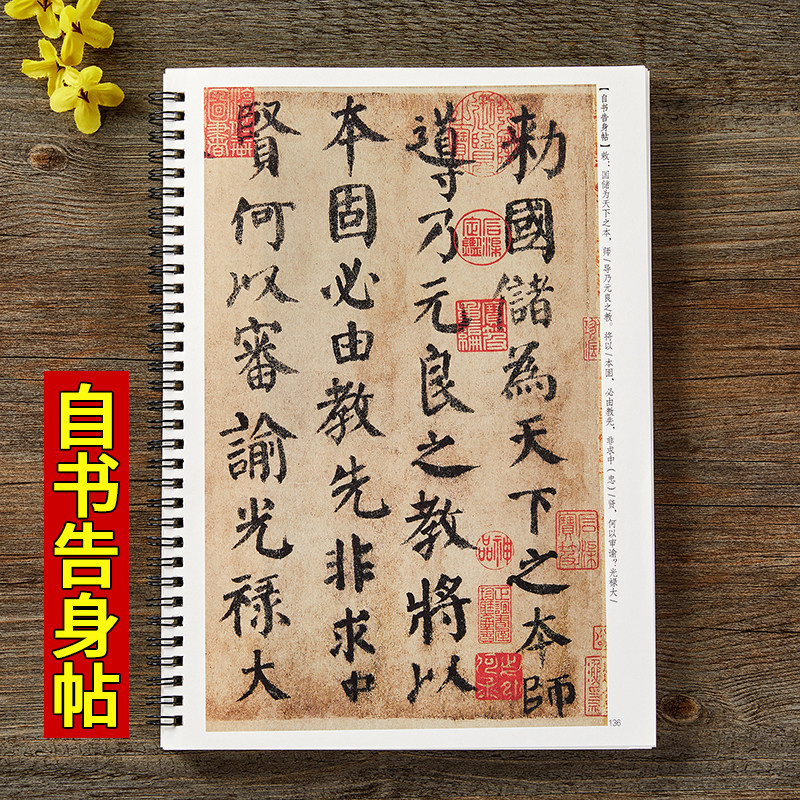 自书告身帖
【自书告身帖】敕:国储为天下之本,师/导乃元良之教。将以/本固,必由教先,非求中(忠)/贤,何以审谕?光禄大/
勅國儲為天下之本師
導乃元良之教將以
本固必由教先非求中
賢何以審諭光祿大
石渠定鑑
寶笈重編
神品
石渠寶笈
136